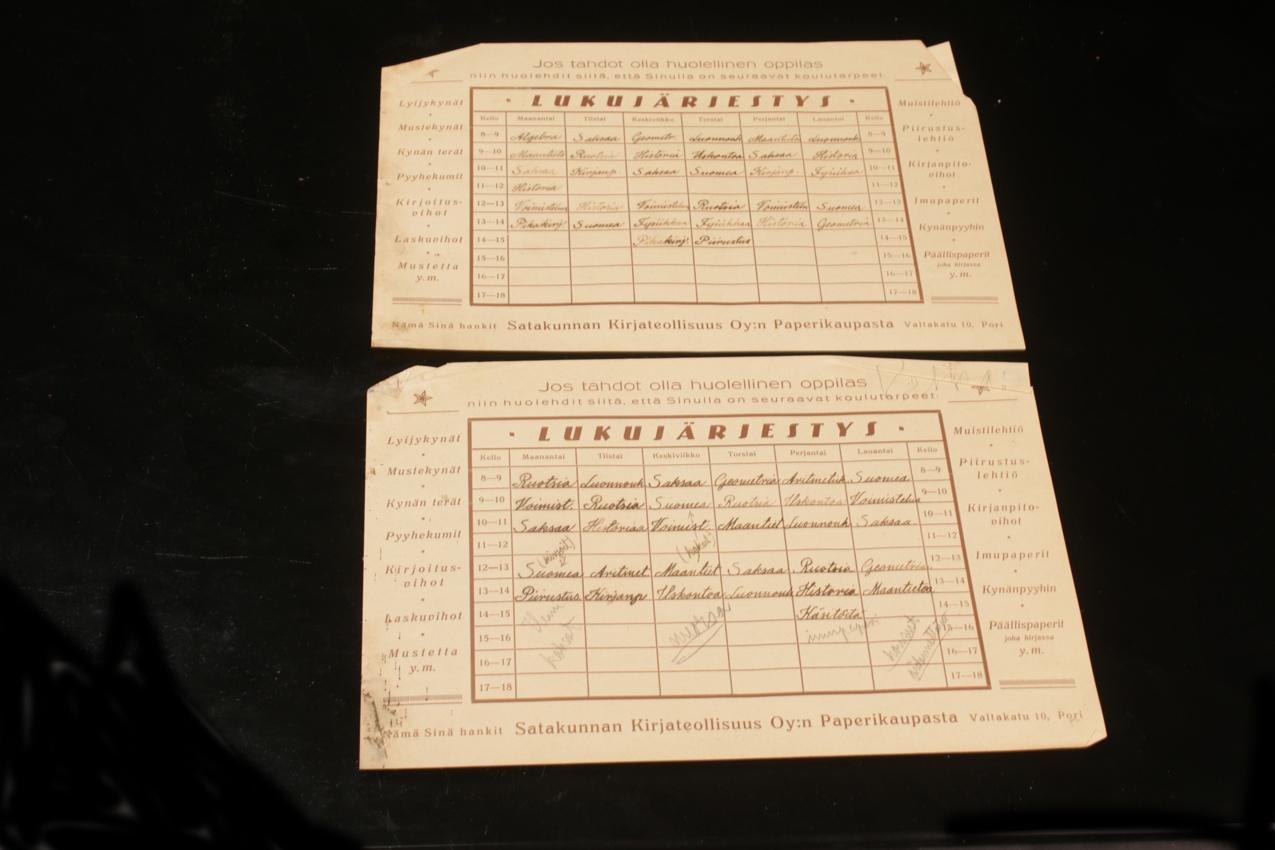 Jos tahdot olla huolellinen oppilas
niin huolehdit siitä, että Sinulla on seuraavat koulutarpeet:
Lyijykynät
Mustekynät
Kynän terät
Pyyhekumit
Kirjoitus-
vihot
Laskuvihot
Mustetta
y.m.
· LUKUJÄRJESTYS ·
Kello Maanantai Tiistai Keskiviikko Torstai Perjantai Lauantai Kello
8—9 Algebra Saksaa Geometr. Luonnonh Maantieto Luonnonh 8—9
9—10 Maantieto Ruotsia Historia Uskontoa Saksaa Historia 9—10
10—11 Saksaa Kirjanp. Saksaa Suomea Kirjanp. Fysiikkaa 10—11
11—12 Historia 11—12
12—13 Voimistelua Historia Voimistelua Ruotsia Voimistelu Suomea 12—13
13—14 Pikakirj. Suomea Fysiikkaa Fysiikkaa Historia Geometria 13—14
14—15 Pikakirj. Piirustus 14—15
15—16 15—16
16—17 16—17
17—18 17—18
Muistilehtiö
Piirustus-
lehtiö
Kirjanpito-
vihot
Imupaperit
Kynänpyyhin
Päällispaperit
joha kirjassa
y.m.
Nämä Sinä hankit Satakunnan Kirjateollisuus Oy:n Paperikaupasta Valtakatu 10, Pori
Jos tahdot olla huolellinen oppilas
niin huolehdit siitä, että Sinulla on seuraavat koulutarpeet:
Lyijykynät
Mustekynät
Kynän terät
Pyyhekumit
Kirjoitus-
vihot
Laskuvihot
Mustetta
y.m.
· LUKUJÄRJESTYS ·
Kello Maanantai Tiistai Keskiviikko Torstai Perjantai Lauantai Kello
8—9 Ruotsia Luonnonh Saksaa Geometria Aritmetiik Suomea 8—9
9—10 Voimist. Ruotsia Suomea Ruotsia Uskontoa Voimistelua 9—10
10—11 Saksaa Historiaa Voimist. Maantiet Luonnonh Saksaa 10—11
11—12 11—12
12—13 Suomea Aritmet. Maantiet Saksaa Ruotsia Geometria 12—13
13—14 Piirustus Kirjanp Uskontoa Luonnonh Historia Maantietoa 13—14
14—15 Käsitöitä 14—15
15—16 15—16
16—17 16—17
17—18 17—18
Muistilehtiö
Piirustus-
lehtiö
Kirjanpito-
vihot
Imupaperit
Kynänpyyhin
Päällispaperit
joha kirjassa
y.m.
Nämä Sinä hankit Satakunnan Kirjateollisuus Oy:n Paperikaupasta Valtakatu 10, Pori